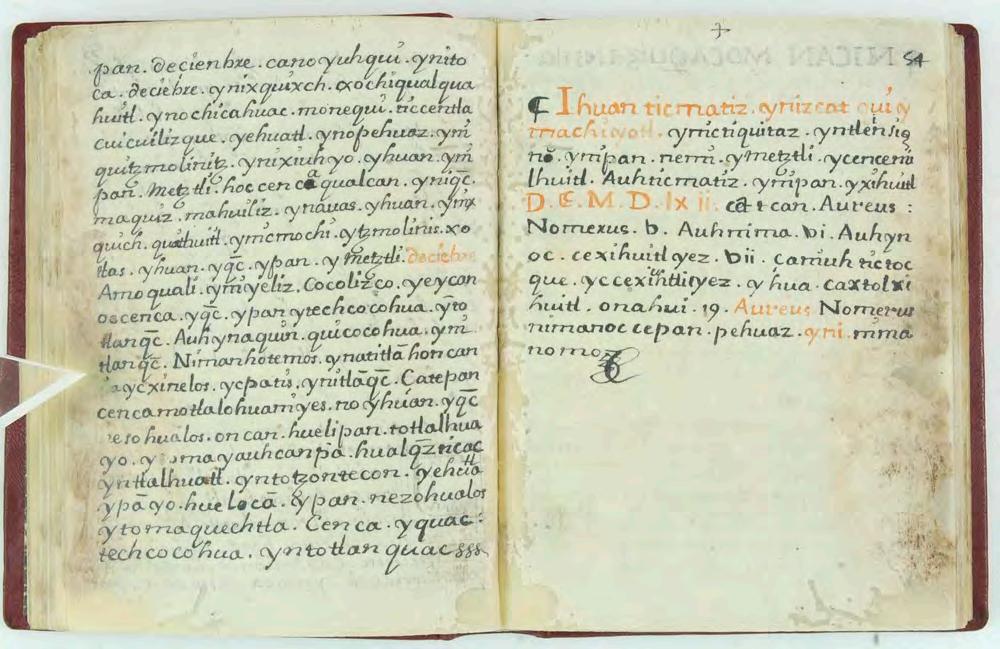 pan. deciembre. cano yuhqui. ynito
ca. deciēbre. ynixquixch. xochiqualqua
huitl. ynochicahuac. monequi. ticcentla
cuicuilizque. yehuatl. ynopehuaz. ym̄
quitzmolinitz. ynixiuhyo. yhuan. ym̄
pan. Metztli. hoc cenca qualcan. yniq̄c.
maquiz. mahuiliz. ynauas. yhuan. ymix
quich. quahuitl. ymicmochi. ytzmolinis. xo
tlas. yhuan. yq̄c. ypan. y Metztli. deciēbre
Amo quali. ym̄ yeliz. Cocolizco. yeycan
os cenca. yq̄c. ypan ytech cocohua. yto
tlanq̄c. Auhynaquin. quicocohua. ym̄.
tlanq̄c. Nimanhotemos. ynatitlā honcan
ycxinelos. ycpatis. ynitlāq̄c. Catepan
cenca motlalohuam̄yes. no yhuan. yq̄c
nesohualos. oncan. huelipan. totlalhua
yo. y ma yauhcanpā. hualq̄zticac
ynttalhuatl. yntotzontecon. yehuatl
ypā yo. huelocā. ypan. nezohualos
ytomaquechtla. Cenca. yquac:
techcocohua. yntotlan quac sss
54
Ihuan ticmatiz. ynizcat qui y
machiyotl. ynictiquitaz. yntlein sig
no. ynipan. nemi. y metztli. ycencemi
lhuitl. Auhticmatiz. ymipan. yxihuitl
D. E. M. D. lx ii. cātcan. Aureus:
Nomexus. b. Auhnima. bi. Auhyn
oc. cexihuitl yez. bii. caniuh tictoc
que. yccexihuitl yez. yhua. caxtolxi
huitl. onahui. 19. Aureus Nomerus
nimanoc cepan. pehuaz. yni. nima
nomoz